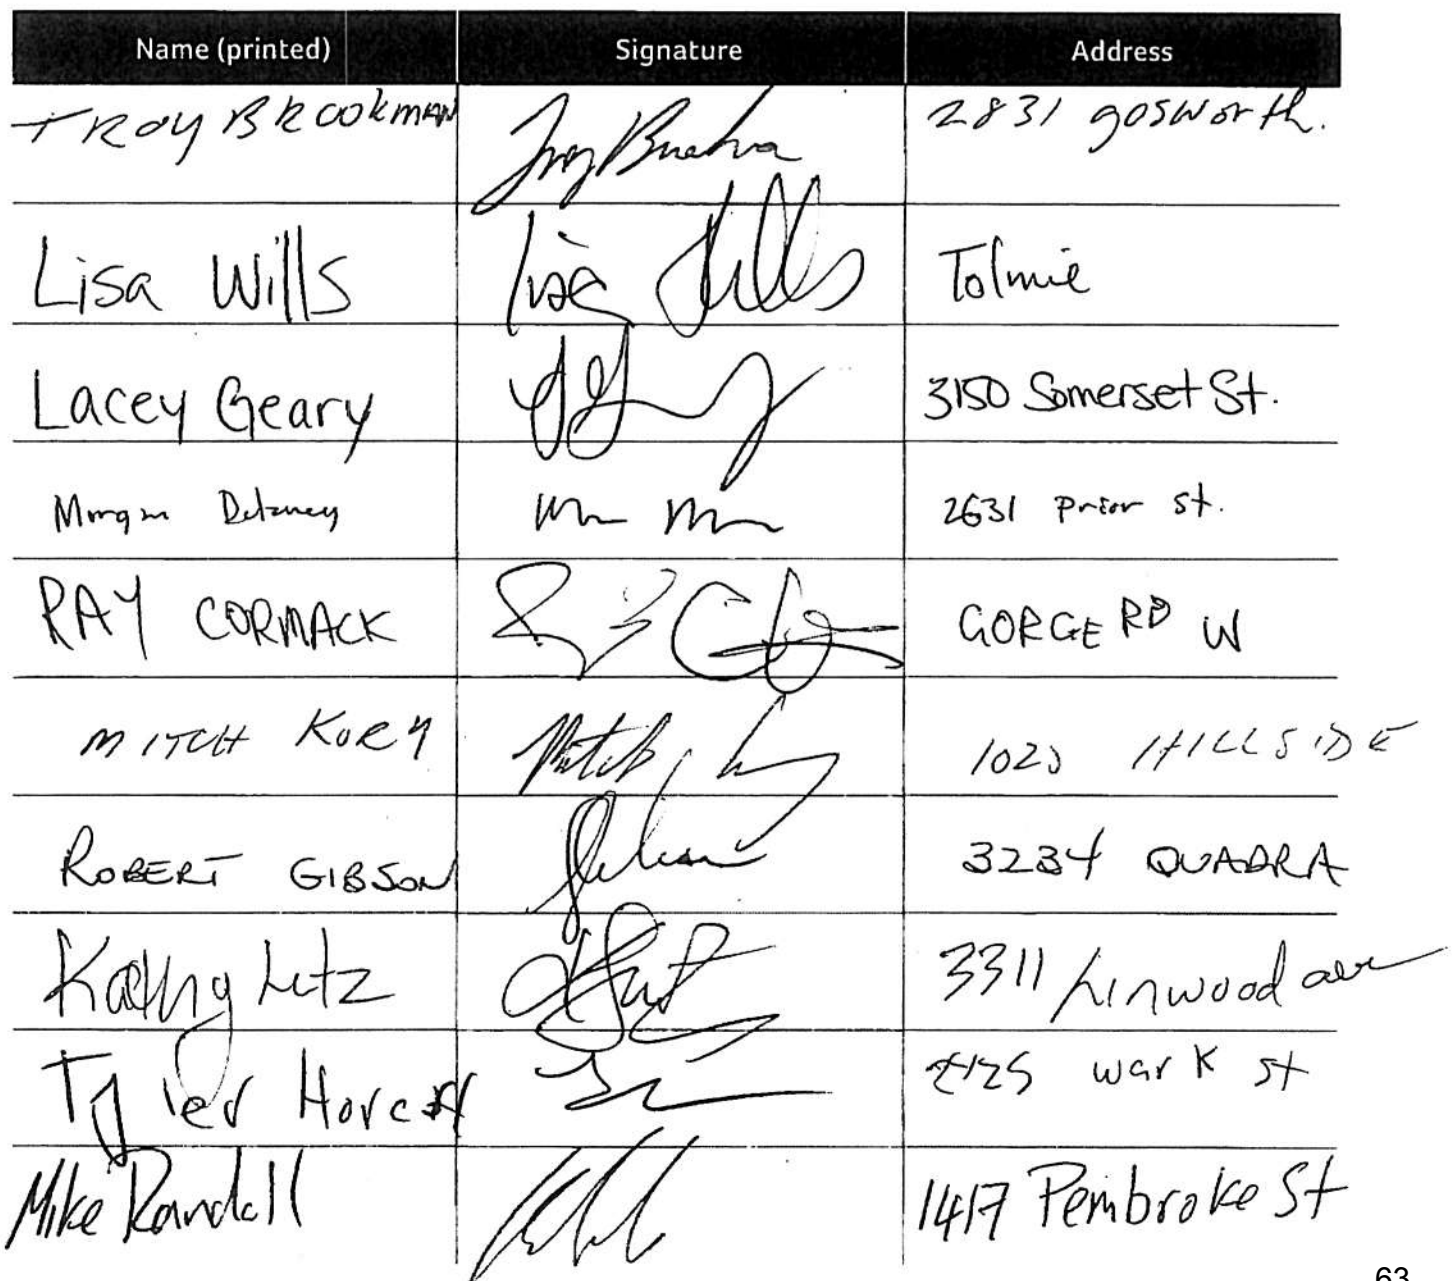 Name (printed) Signature Address
TROY BROOKMAN 2831 gosworth.
Lisa Wills Lisa Wills Tolmie
Lacey Geary 3150 Somerset St.
Morgan Delaney 2631 prior st.
RAY CORMACK GORGE RD W
MITCH KOREY 1023 HILLSIDE
ROBERT GIBSON 3234 QUADRA
Kathy Lutz 3311 Linwood ave
Tyler 2125 wark st
Mike Randall 1417 Pembroke St
63